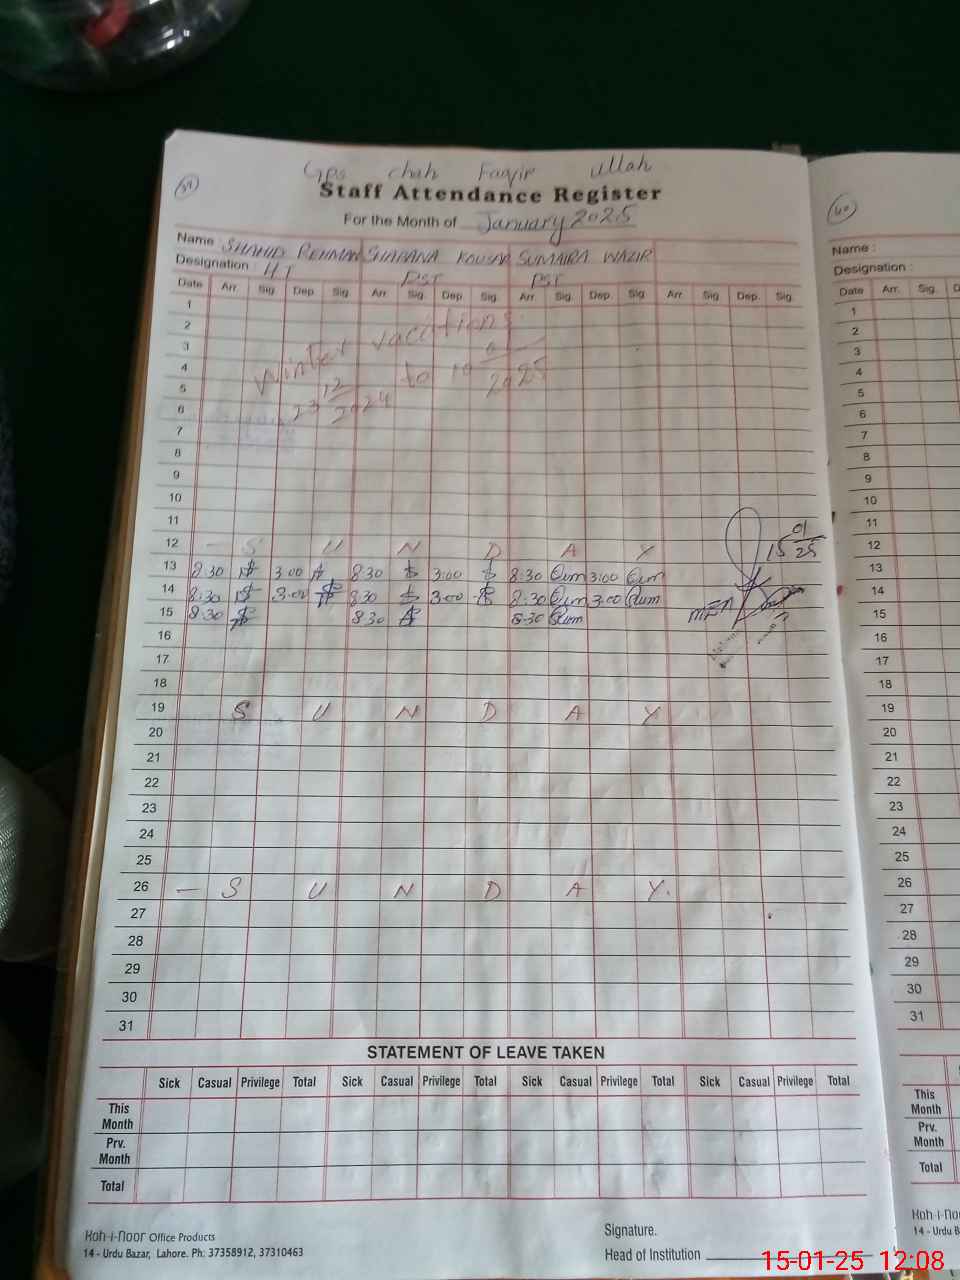 39
Gps chah Faqir ullah
Staff Attendance Register
For the Month of January 2025
Name SHAHID REHMAN SHABANA KOUSAR SUMAIRA WAZIR
Designation HT PST PST
Date Arr. Sig. Dep. Sig. Arr. Sig. Dep. Sig. Arr. Sig. Dep. Sig. Arr. Sig. Dep. Sig.
1
2
3
4
5
6
Winter vacations
23 12/2024 to 2025
7
8
9
10
11
12 - S U N D A Y
13 8:30 3:00 8:30 3:00 8:30 3:00
14 8:30 3:00 8:30 3:00 8:30 3:00
15 8:30 8:30 8:30
15 01/25
MEA
16
17
18
19 S U N D A Y
20
21
22
23
24
25
26 - S U N D A Y.
27
28
29
30
31
STATEMENT OF LEAVE TAKEN
Sick Casual Privilege Total Sick Casual Privilege Total Sick Casual Privilege Total Sick Casual Privilege Total
This Month
Prv. Month
Total
Koh-i-noor Office Products
14 - Urdu Bazar, Lahore. Ph: 37358912, 37310463
Signature.
Head of Institution
40
Name :
Designation :
Date Arr. Sig. D
1
2
3
4
5
6
7
8
9
10
11
12
13
14
15
16
17
18
19
20
21
22
23
24
25
26
27
28
29
30
31
Sick
This Month
Prv. Month
Total
Koh-i-no
14 - Urdu B
15-01-25 12:08